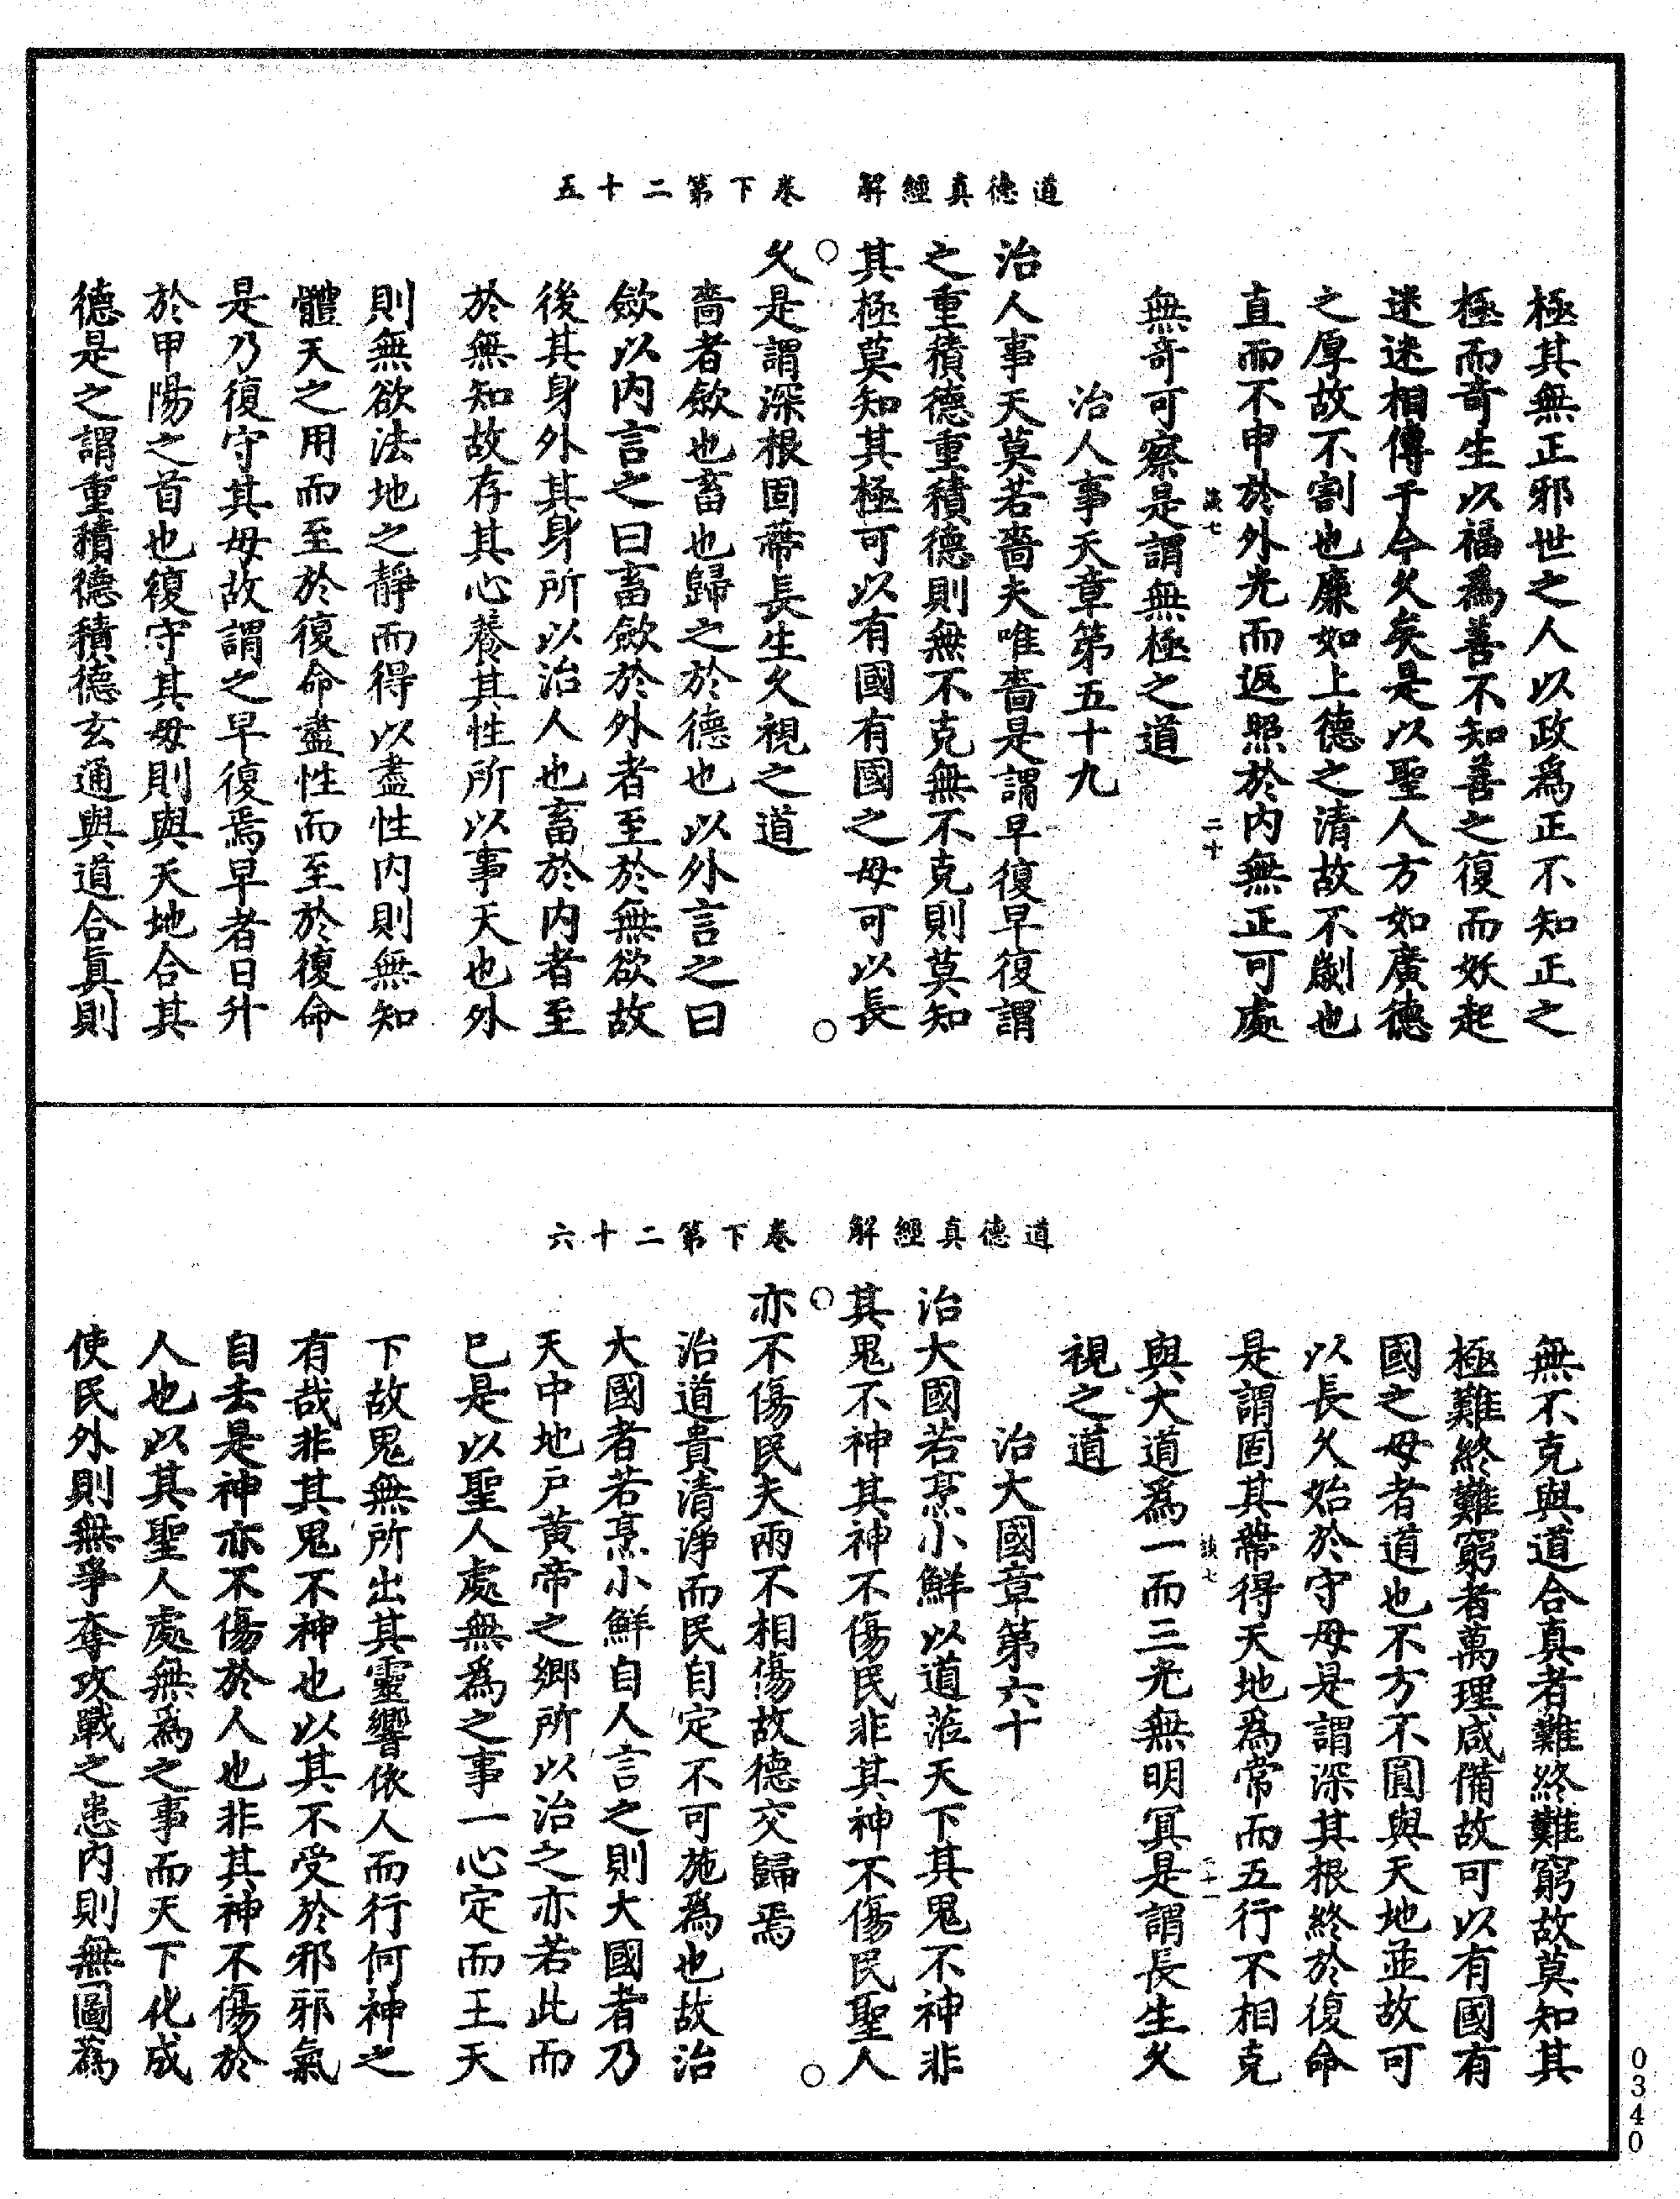 道德真經解　卷下第二十五
極其無正邪世之人以政爲正不知正之
極而奇生以福爲善不知善之復而妖起
迷迷相傳于今久矣是以聖人方如廣德
之厚故不割也廉如上德之清故不劌也
直而不申於外光而返照於內無正可處
二十
無奇可察是謂無極之道
治人事天章第五十九
治人事天莫若嗇夫唯嗇是謂早復早復謂
之重積德重積德則無不克無不克則莫知
其極莫知其極可以有國有國之母可以長
○
○
久是謂深根固蔕長生久視之道
嗇者斂也畜也歸之於德也以外言之曰
斂以內言之曰畜斂於外者至於無欲故
後其身外其身所以治人也畜於內者至
於無知故存其心養其性所以事天也外
則無欲法地之靜而得以盡性內則無知
體天之用而至於復命盡性而至於復命
是乃復守其母故謂之早復焉早者日升
於甲陽之首也複守其母則與天地合其
德是之謂重積德積德玄通與道合真則
道德真經解　卷下第二十六
無不克與道合真者難終難窮故莫知其
極難終難窮者萬理咸備故可以有國有
國之母者道也不方不圓與天地並故可
以長久始於守母是謂深其根終於復命
是謂固其蔕得天地爲常而五行不相克
二十一
與大道爲一而三光無明冥是謂長生久
視之道
治大國章第六十
治大國若烹小鮮以道莅天下其鬼不神非
其鬼不神其神不傷民非其神不傷民聖人
○
○
亦不傷民夫兩不相傷故德交歸焉
治道貴清淨而民自定不可施爲也故治
大國者若烹小鮮自人言之則大國者乃
天中地戶黃帝之鄉所以治之亦若此而
已是以聖人處無爲之事一心定而王天
下故鬼無所出其靈響依人而行何神之
有哉非其鬼不神也以其不受於邪邪氣
自去是神亦不傷於人也非其神不傷於
人也以其聖人處無爲之事而天下化成
使民外則無爭奪攻戰之患內則無圖爲
0340